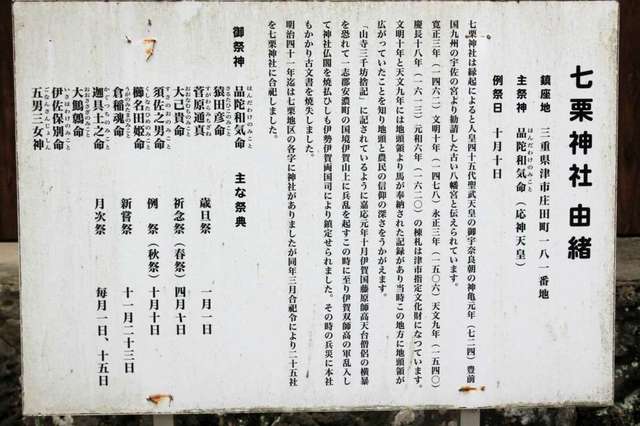 七栗神社 由緒
鎮座地 三重県津市庄田町一八一番地
主祭神 品陀和気命（応神天皇）
ほんだわけのみこと
例祭日 十月十日
七栗神社は縁起によると人皇四十五代聖武天皇の御宇奈良朝の神亀元年（七二四）豊前
国九州の宇佐の宮より勧請した古い八幡宮と伝えられています。
寛正三年（一四六二）文明十年（一四七八）永正三年（一五〇六）天文九年（一五四〇）
慶長十八年（一六一三）元和六年（一六二〇）の棟札は津市指定文化財になっています。
文明十年と天文九年には地頭領より馬が奉納された記録があり当時この地方に地頭領が
広がっていたことを知り地頭と農民の信仰の深さをうかがえます。
「山寺三千坊捨記」に記されているように嘉応元年十月伊賀国藤原師高天台僧侶の横暴
を恐れて一志郡安濃町の国境伊賀山上に兵乱を起すこの時に至り伊賀双師高の軍乱入し
て神社仏閣を焼払ひしも伊勢伊賀両国司により鎮定せられました。その時の兵災に本社
もかかり古文書を焼失しました。
明治四十一年迄は七栗地区の各字に神社がありましたが同年三月合祀令により二十五社
を七栗神社に合祀しました。
御祭神
品陀和気命
ほんだわけのみこと
猿田彦命
さるたひこのみこと
菅原道真
大己貴命
須佐之男命
櫛名田姫命
倉稲魂命
迦具土之命
大鷦鷯命
伊佐保別命
五男三女神
主な祭典
歳旦祭 一月一日
祈念祭（春祭）四月十日
例 祭（秋祭）十月十日
新嘗祭 十一月二十三日
月次祭 毎月一日、十五日